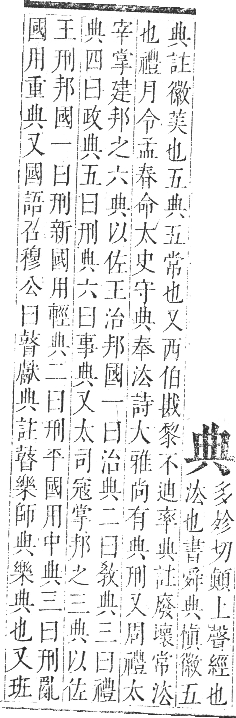 典多殄切顛上聲經也
法也書舜典愼徽五
典註徽美也五典五常也又西伯戡黎不迪率典註廢壞常法
也禮月令孟春命太史守典奉法詩大雅尚有典刑又周禮太
宰掌建邦之六典以佐王治邦國一曰治典二曰敎典三曰禮
典四曰政典五曰刑典六曰事典又太司寇掌邦之三典以佐
王刑邦國一曰刑新國用輕典二曰刑平國用中典三曰刑亂
國用重典又國語召穆公曰瞽獻典註瞽樂師典樂典也又班